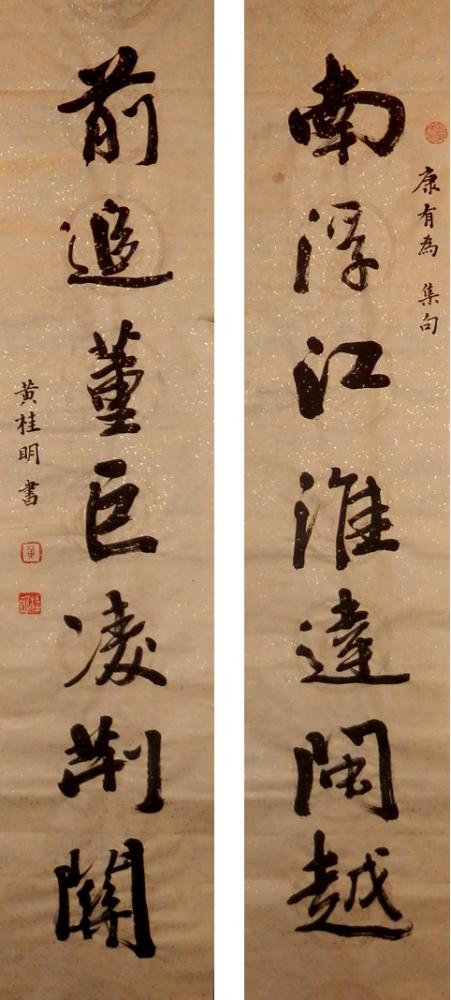 康有為 集句
南浮江淮達閩越
前追董巨凌荊關
黃桂明 書